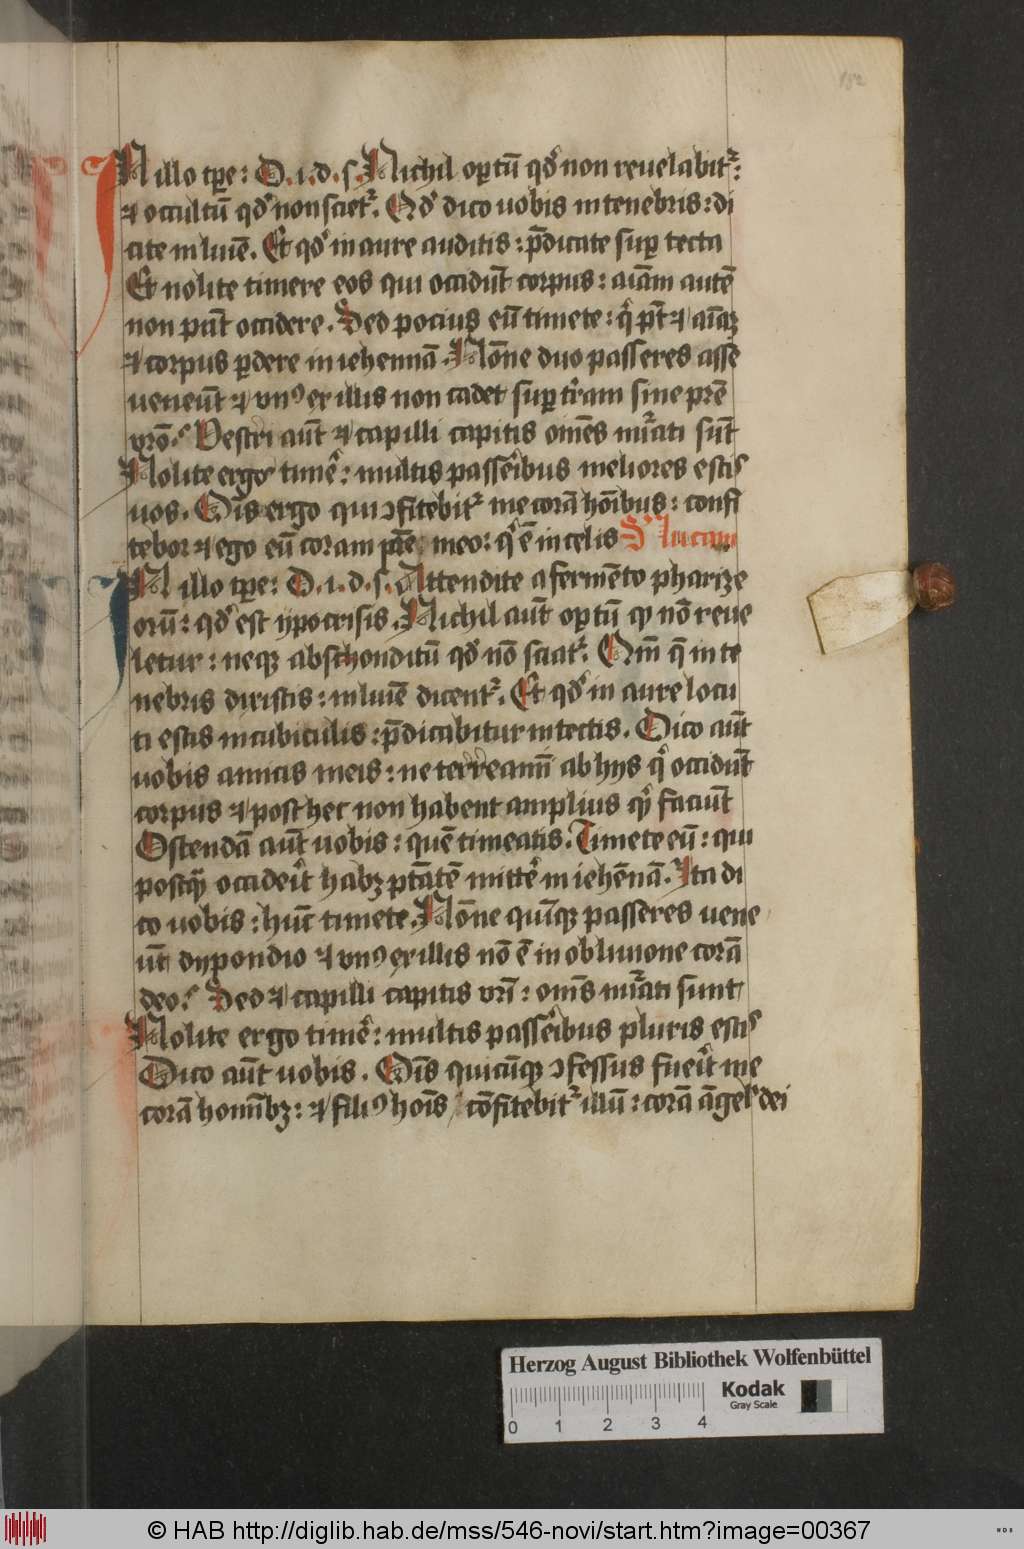 182
IN illo tp̄e: D.i.d.s. Nichil op̱tū qd̓ non reuelabit᷑:
⁊ occultū qd̓ non sciet᷑. Qd̓ dico uobis in tenebris: di
cite in luīe. Et qd̓ in aure auditis: p̄dicate sup̱ tecta
Et nolite timere eos qui occidūt corpus: aīam autē
non pn̄t occidere. Sed pocius eū timete: qͥ pt̄ ⁊ aīaꝫ
⁊ corpus p̱dere in iehennā. Nōne duo passeres asse
ueneūt ⁊ vnꝰ ex illis non cadet sup̱ tr̄am sine pr̄e
vrō. Vestri aūt ⁊ capilli capitis om̄es nūͣti sūt
Nolite ergo timē: multis passēibus meliores estis
uos. Om̄is ergo qui ↄfitebit᷑ me corā hōibus: confi
tebor ⁊ ego eū coram pr̄e meo: qͥ ē in celis S' lucam
IN illo tp̄e: D.i.d.s. Attendite a fermēto pharize
orū: qd̓ est ypocrisis. Nichil aūt op̱tū qd̓ nō reue
letur: neqꝫ abschonditū qd̓ nō sciat᷑. Qm̄ q̄ in te
nebris dixistis: in luīe dicent᷑. Et qd̓ in aure locu
ti estis in cubiculis: p̄dicabitur in tectis. Dico aūt
uobis amicis meis: ne terreamī ab hys qͥ occidūt
corpus ⁊ post hec non habent amplius qd̓ faciūt
Ostendā aūt uobis: quē timeatis. Timete eū: qui
postqͣ̄ occideīt habꝫ ptātē mittē in iehēnā. Ita di
co uobis: hūc timete. Nōne quīqꝫ passeres uene
ūt dypondio ⁊ vnꝰ ex illis nō ē in obliuione corā
deo. Sed ⁊ capilli capitis vrī: om̄s nūͣti sunt
Nolite ergo timē: multis passēibus pluris estis
Dico aūt uobis. Om̄is quicūqꝫ ↄfessus fueīt me
corā homībꝫ: ⁊ filiꝰ hoīs cōfitebit᷑ illū: corā āgel' dei
Herzog August Bibliothek Wolfenbüttel
Kodak
Gray Scale
0 1 2 3 4
© HAB http://diglib.hab.de/mss/546-novi/start.htm?image=00367